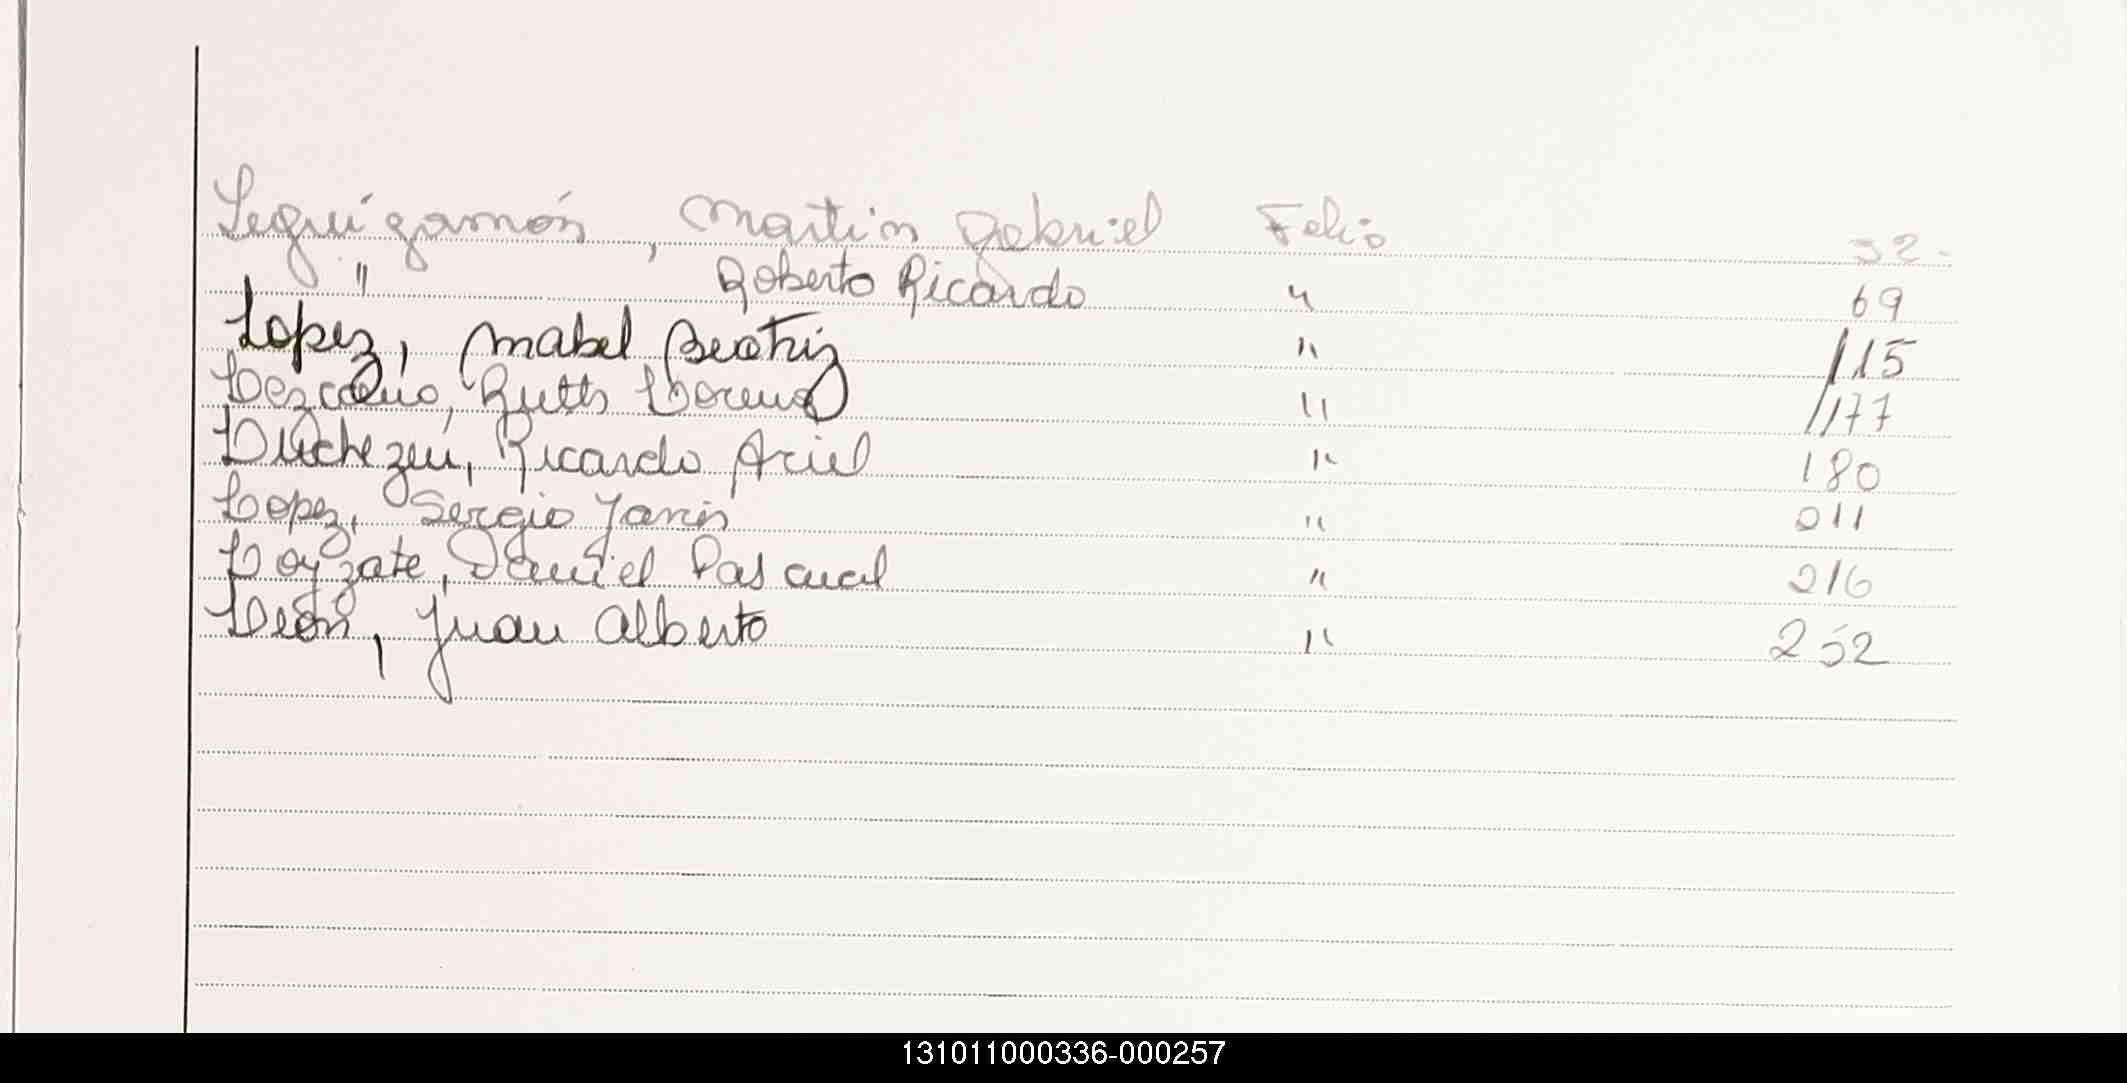 Leguizamón, Martin Gabriel Folio 32.
" Roberto Ricardo " 69
Lopez, Mabel Beatriz " 115
Lezcano, Ruth Lorena " 177
Ricardo Ariel " 180
Lopez, Sergio " 211
Loyzate, Daniel Pascual " 216
León, Juan Alberto " 252
131011000336-000257